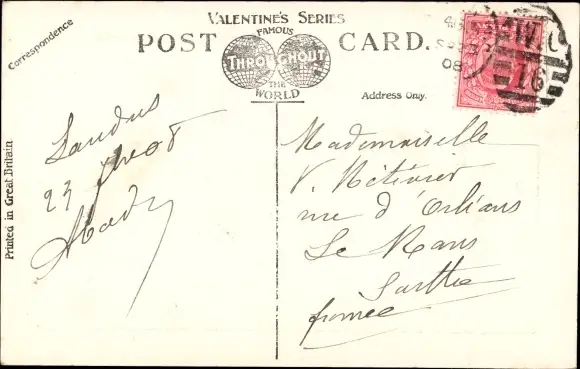 VALENTINE'S SERIES
FAMOUS
POST CARD.
THROUGHOUT
THE
WORLD
Correspondence
Address Only.
Printed in Great Britain
W.C
16
08
Londres
23
08
Mademoiselle
V. Métivier
rue d'Orléans
Le Mans
Sarthe
france